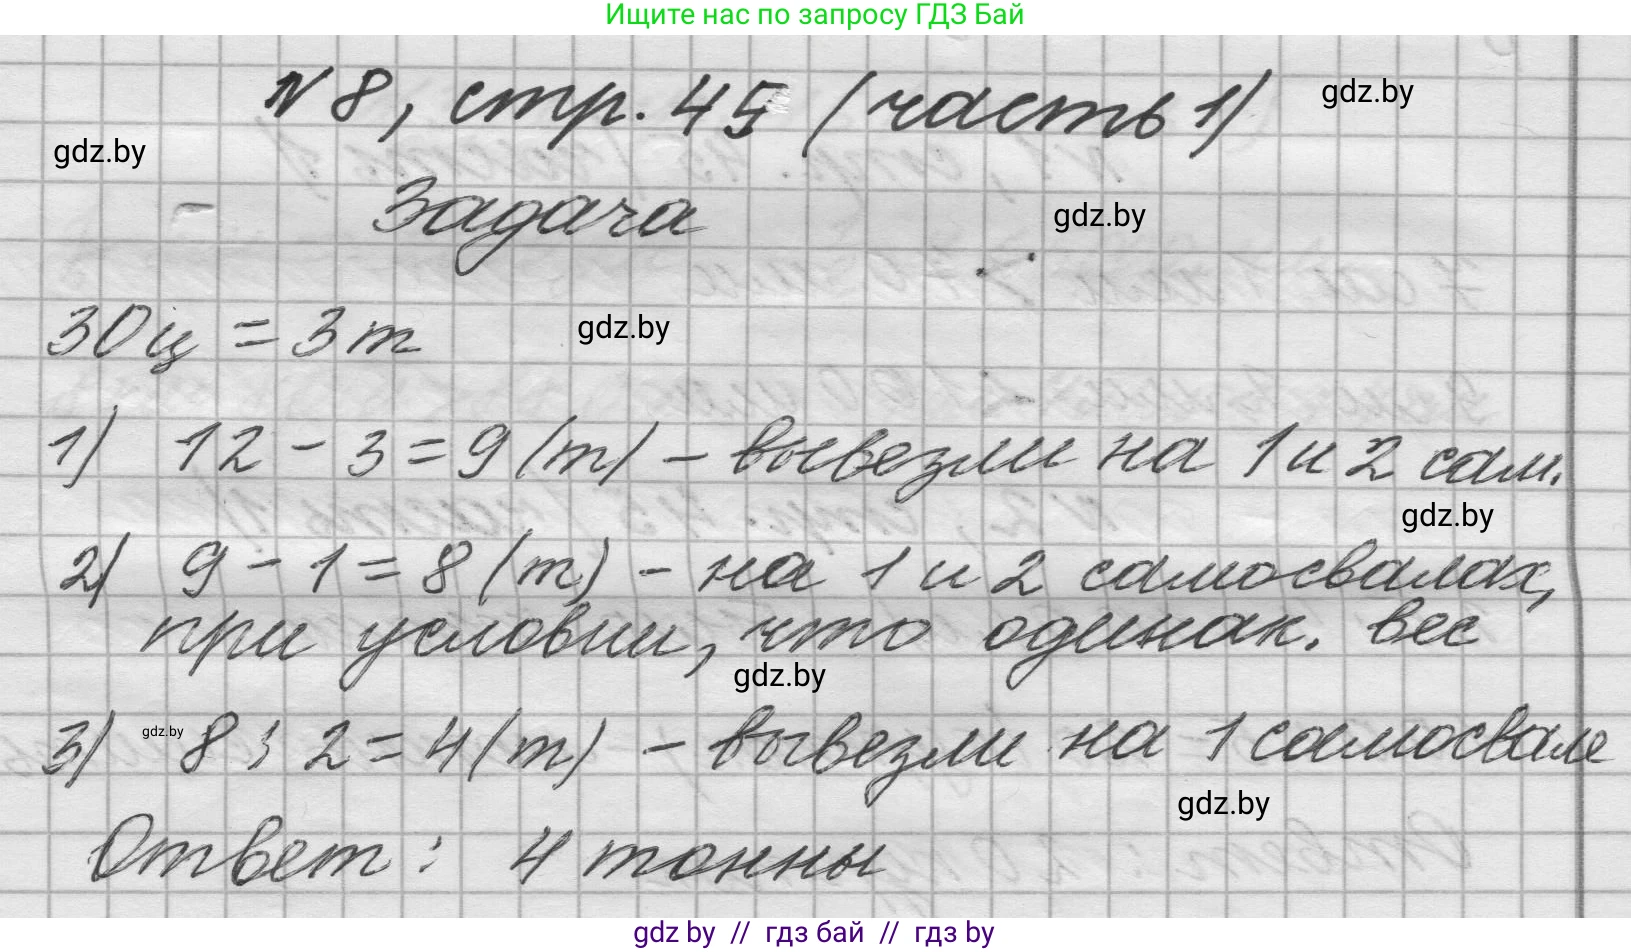 Ищите нас по запросу ГДЗ Бай
№8, стр. 45 (часть 1)
gdz.by
gdz.by
Задача
gdz.by
30ц = 3т
gdz.by
1) 12 - 3 = 9 (т) - вывезли на 1 и 2 сам.
gdz.by
2) 9 - 1 = 8 (т) - на 1 и 2 самосвалах,
при условии, что одинак. вес
gdz.by
3) 8 : 2 = 4 (т) - вывезли на 1 самосвале
gdz.by
gdz.by
Ответ: 4 тонны
gdz by // гдз бай // гдз by